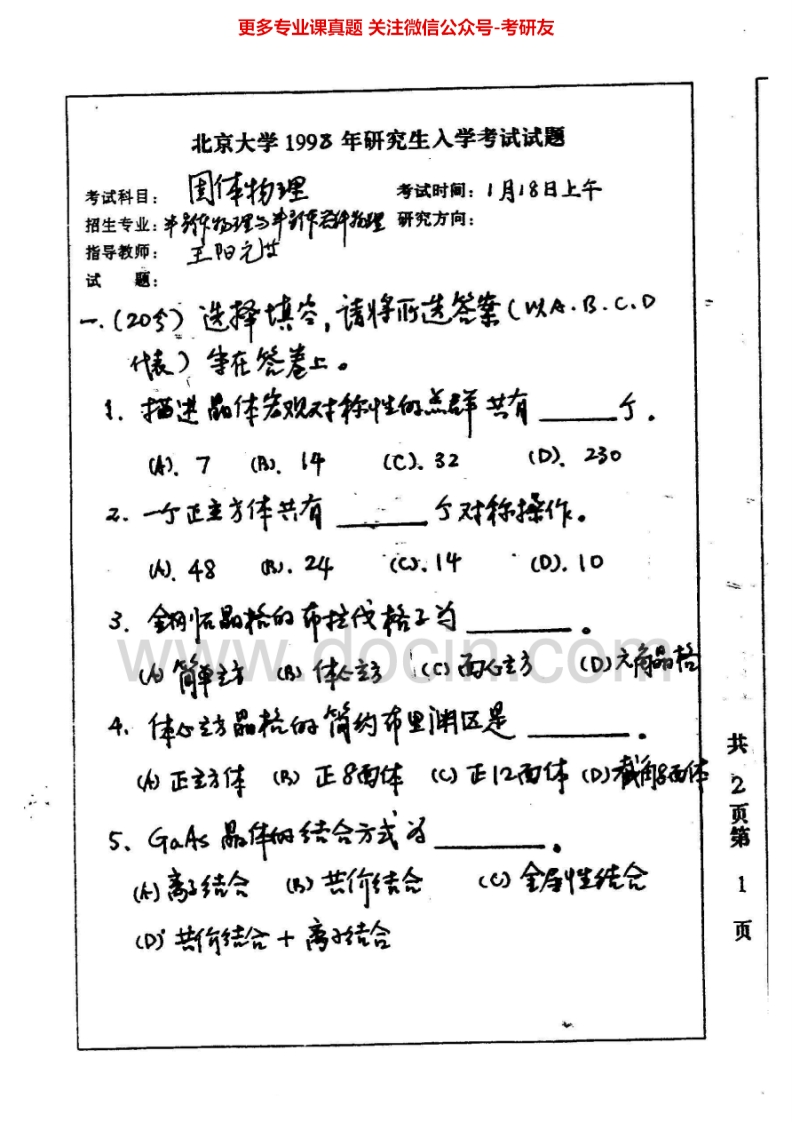 更多专业课真题 关注微信公众号-考研友
北京大学 1998 年研究生入学考试试题
考试科目: 固体物理 考试时间: 1月18日上午
招生专业: 半导体物理与半导体器件物理 研究方向:
指导教师: 王阳元等
试 题:
一.(20分) 选择填空,请将所选答案(以A.B.C.D
代表)写在答卷上。
1. 描述晶体宏观对称性的点群共有______个.
(A). 7 (B). 14 (C). 32 (D). 230
2. 一个正立方体共有______个对称操作。
(A). 48 (B). 24 (C). 14 (D). 10
3. 金刚石晶格的布拉伐格子为______。
(A) 简单立方 (B) 体心立方 (C) 面心立方 (D) 六角晶格
4. 体心立方晶格的简约布里渊区是______。
(A) 正立方体 (B) 正8面体 (C) 正12面体 (D) 截角8面体
5. GaAs 晶体的结合方式为______。
(A) 离子结合 (B) 共价结合 (C) 金属性结合
(D) 共价结合 + 离子结合
共2页第1页
www.docin.com